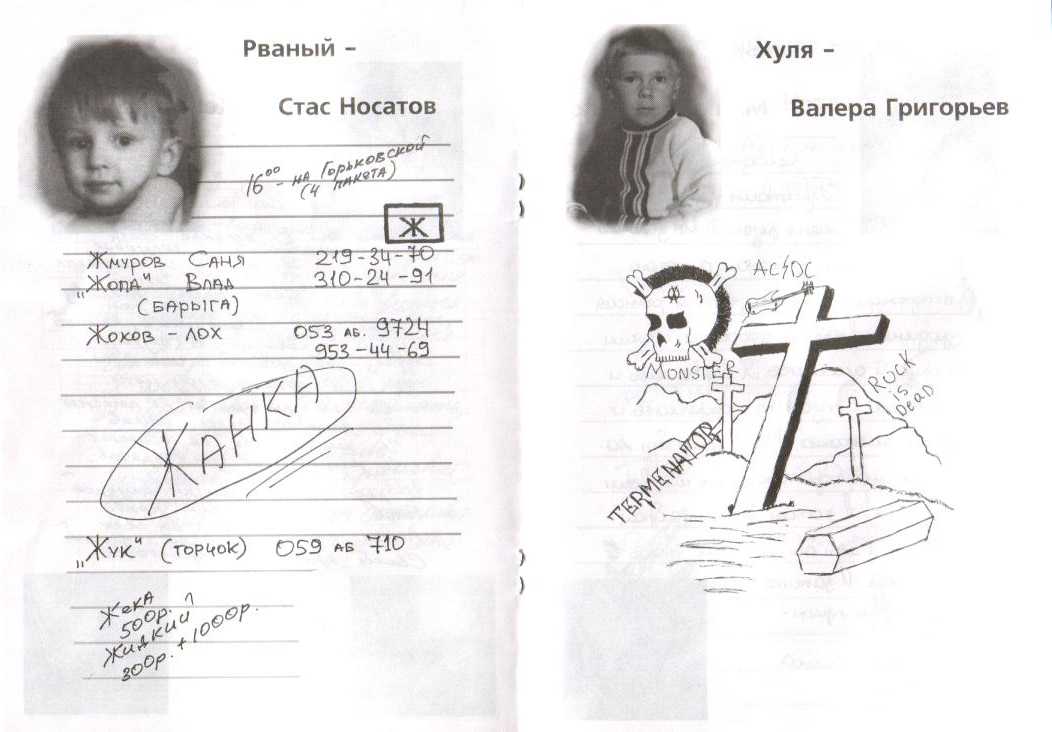 Рваный –
Стас Носатов
16⁰⁰ – на Горьковской
(4 пакета)
Ж
Жмуров Саня 219-34-70
„Жопа" Влад 310-24-91
(барыга)
Жохов – лох 053 аб. 9724
953-44-69
Жанка
„Жук" (торчок) 059 аб 710
Жека
500р.
Жидкий
300р. + 1000р.
Хуля –
Валера Григорьев
AC/DC
MONSTER
ROCK
is
DEAD
TERMENATOR